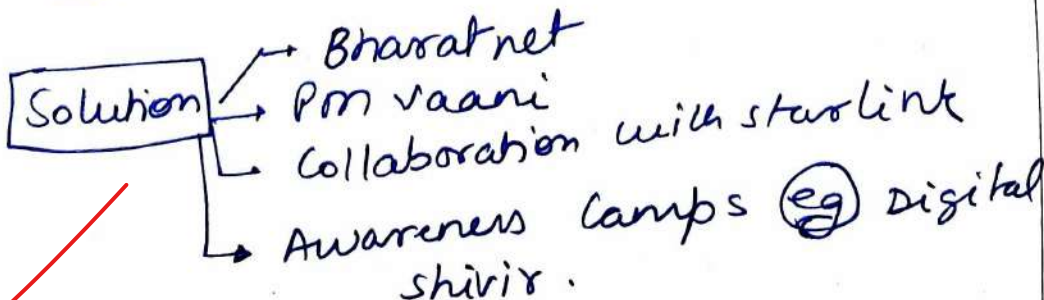 Solution
Bharatnet
Pm vaani
Collaboration with starlink
Awareness Camps eg Digital
shivir.